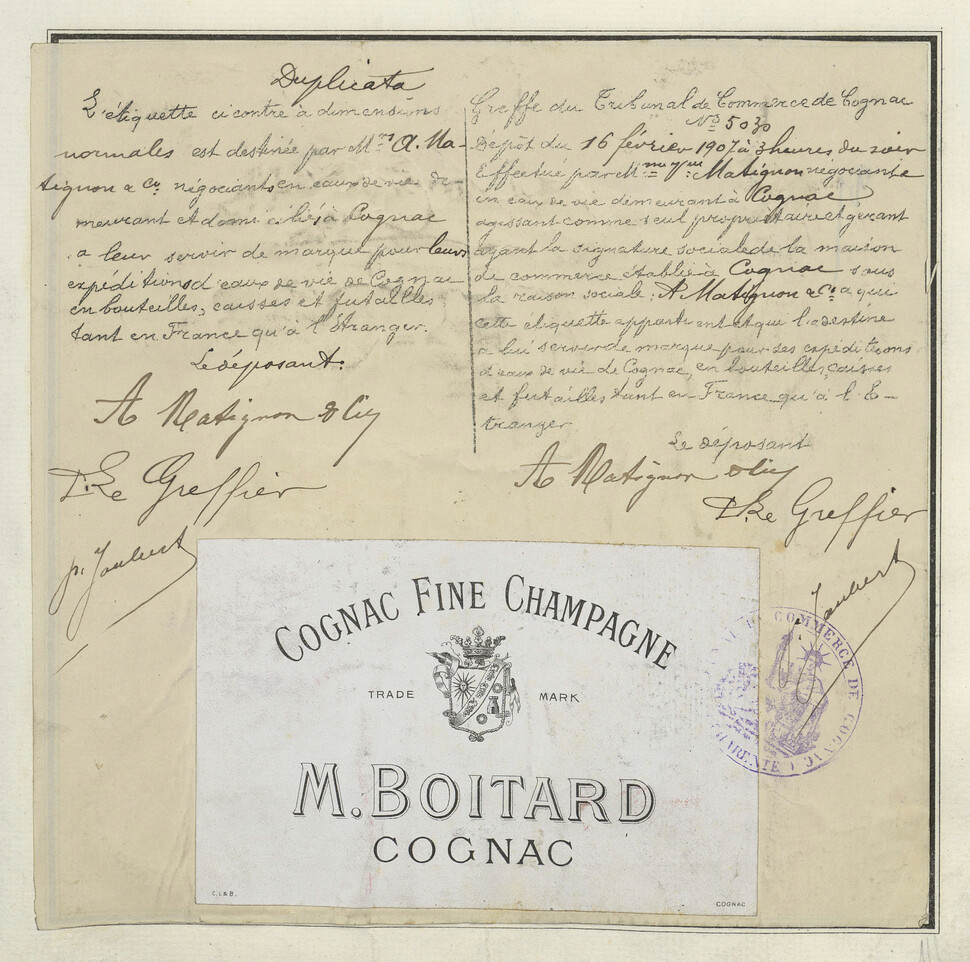 Duplicata
L'étiquette ci contre à dimensions
normales est destinée par M.rs A. Ma-
tignon & Co. négociants en eaux de vie de-
meurant et domicilié à Cognac
a leur servir de marque pour leurs
expéditions d'eaux de vie de Cognac
en bouteilles, caisses et futailles
tant en France qu'à l'Étranger.
Le déposant.
A Matignon & Cie
Le Greffier
p. Joubert
Greffe du Tribunal de Commerce de Cognac
No 5030
Dépôt du 16 février 1907 à 3 heures du soir
Effectué par M. Matignon négociant
en eaux de vie demeurant à Cognac
agissant comme seul propriétaire et gérant
ayant la signature sociale de la maison
de commerce établie à Cognac sous
la raison sociale: A Matignon & Co. a qui
cette étiquette appartient et qui l.a destine
a lui servir de marque pour ses expéditions
d'eaux de vie de Cognac, en bouteilles, caisses
et futailles tant en France qu'à l'E-
tranger
Le déposant
A Matignon & Cie
Le Greffier
Joubert
COGNAC FINE CHAMPAGNE
TRADE MARK
M. BOITARD
COGNAC
C. L & B.
COGNAC
DE COMMERCE DE COGNAC